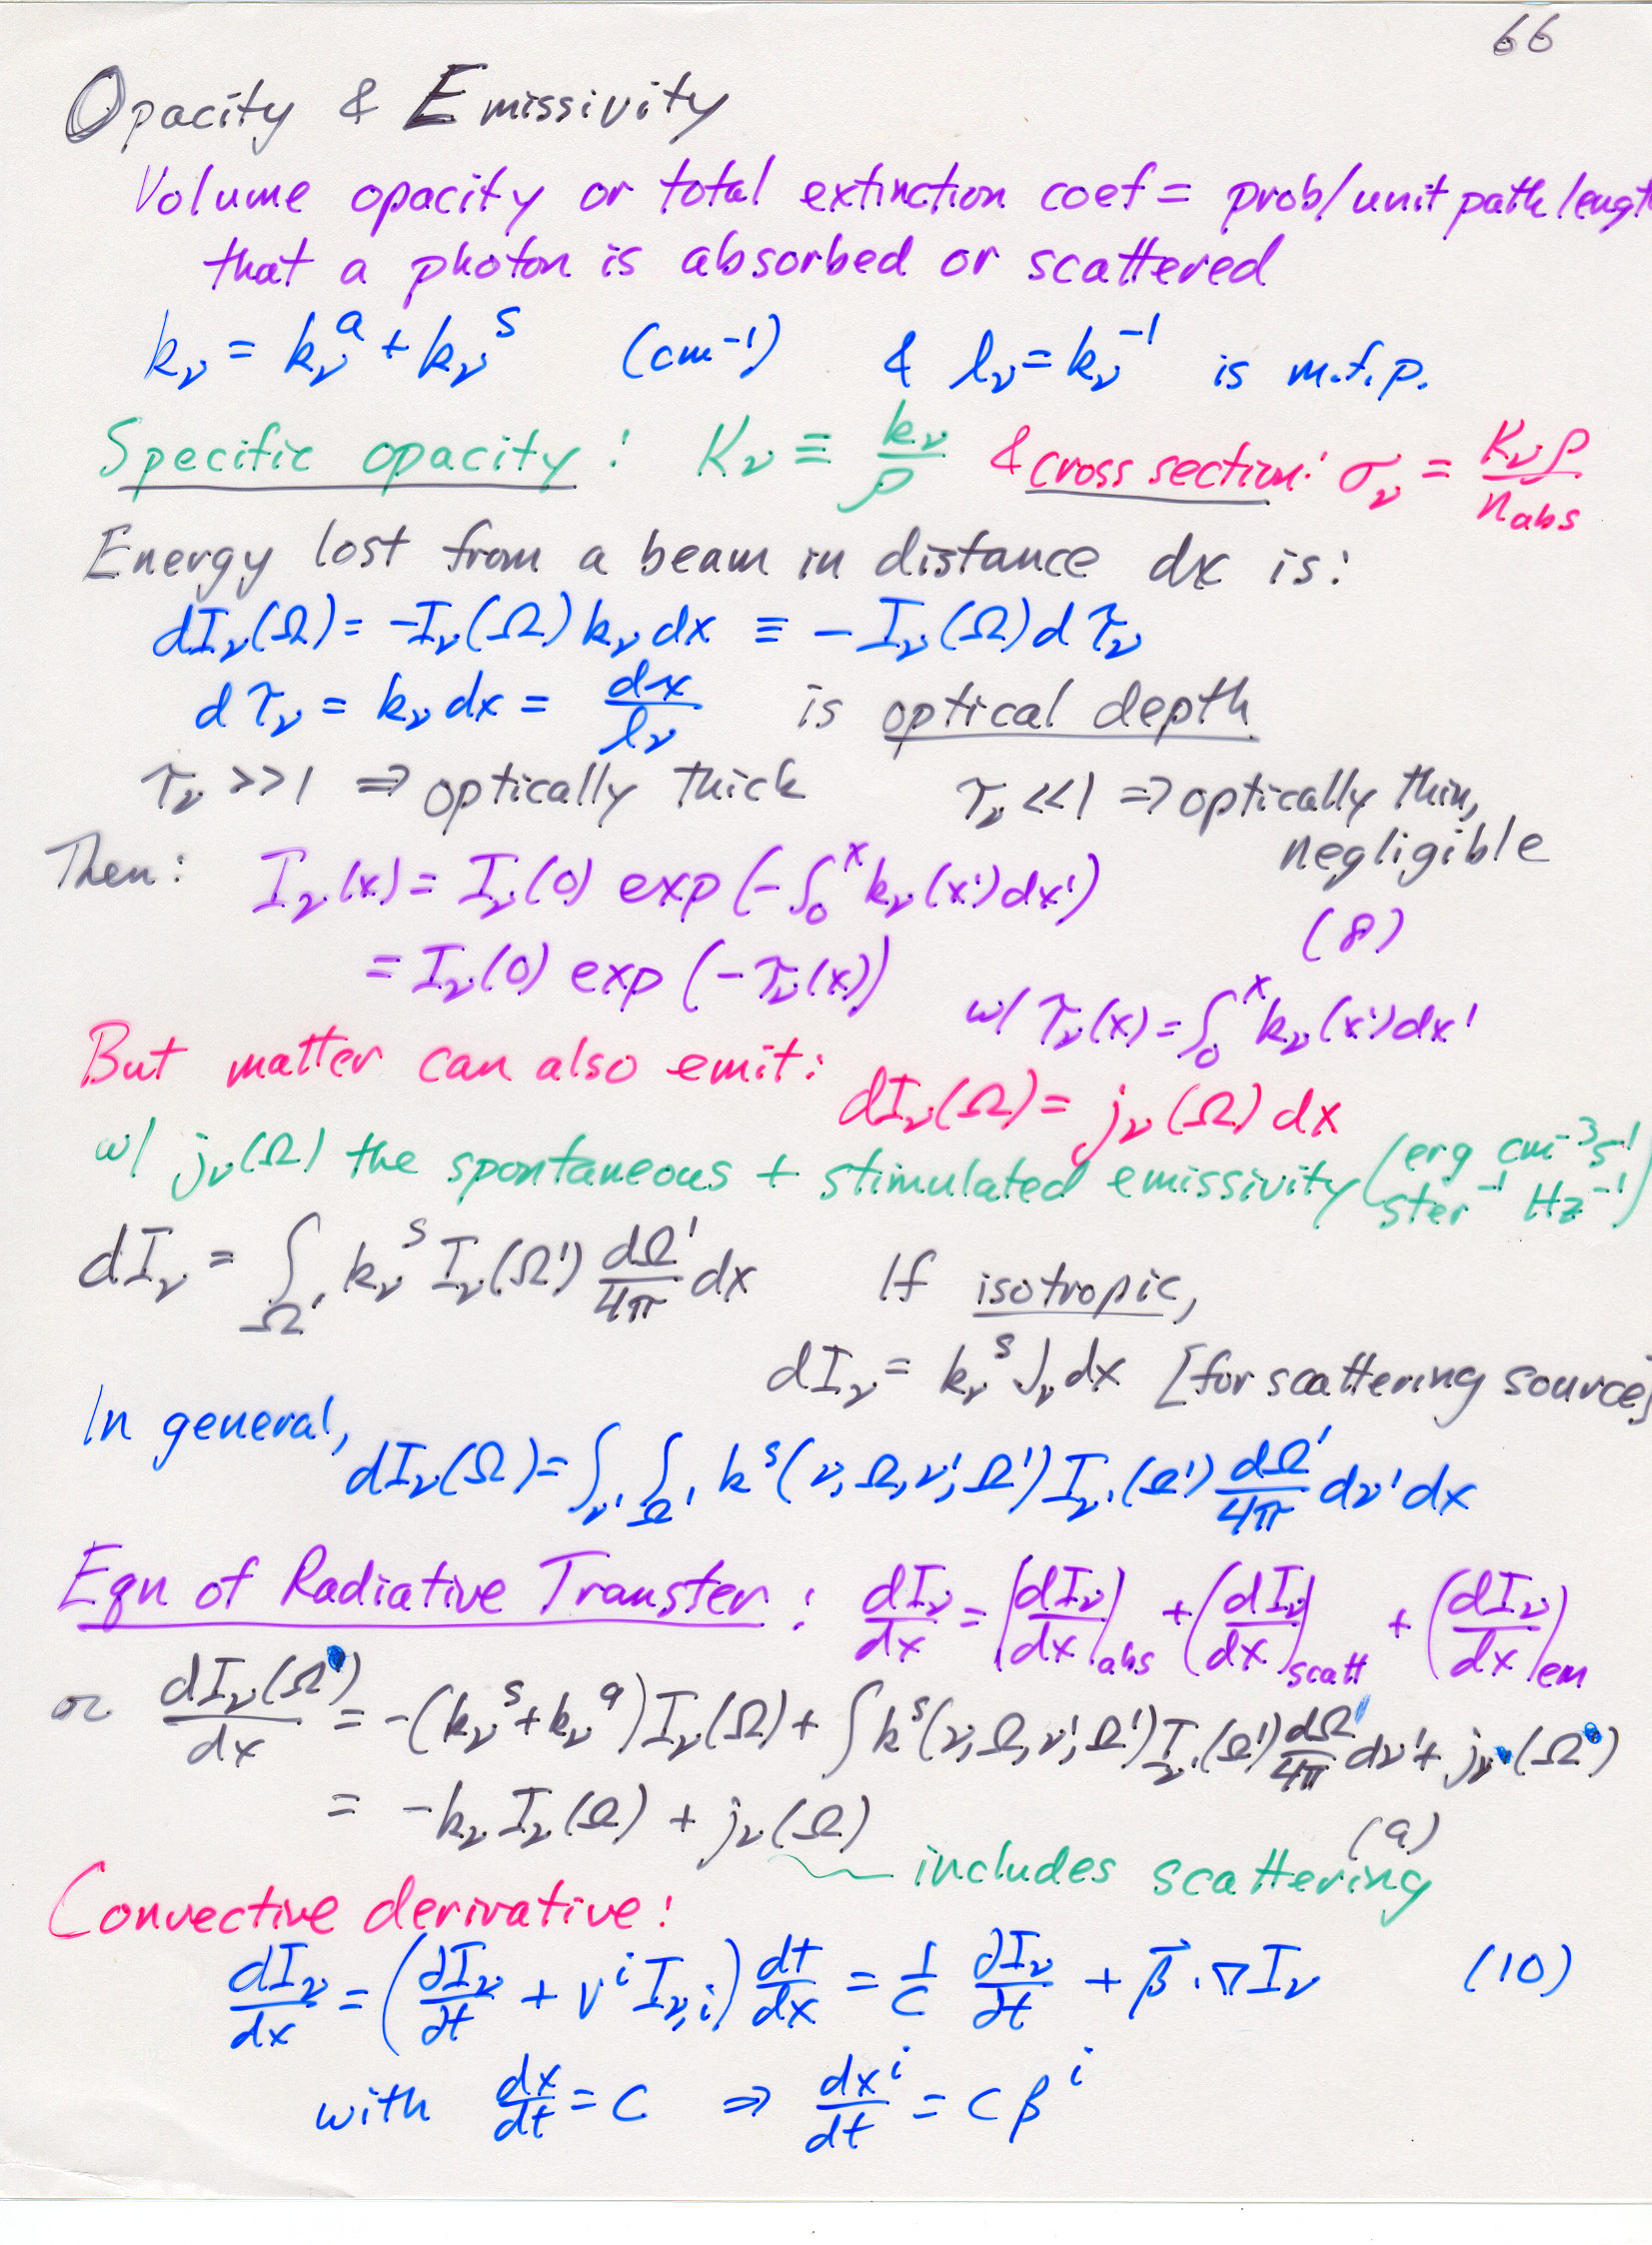 66
Opacity & Emissivity
Volume opacity or total extinction coef = prob/unit path lengt
that a photon is absorbed or scattered
k_ν = k_ν^a + k_ν^s (cm⁻¹) & l_ν = k_ν⁻¹ is m.f.p.
Specific opacity: K_ν ≡ k_ν/ρ & cross section: σ_ν = K_ν ρ/n_abs
Energy lost from a beam in distance dx is:
dI_ν(Ω) = -I_ν(Ω) k_ν dx ≡ -I_ν(Ω) dτ_ν
dτ_ν = k_ν dx = dx/l_ν is optical depth
τ_ν >>1 ⇒ optically thick τ_ν <<1 ⇒ optically thin,
negligible
Then: I_ν(x) = I_ν(0) exp(-∫_0^x k_ν(x')dx')
(8)
= I_ν(0) exp(-τ_ν(x)) w/ τ_ν(x) = ∫_0^x k_ν(x')dx'
But matter can also emit: dI_ν(Ω) = j_ν(Ω) dx
w/ j_ν(Ω) the spontaneous + stimulated emissivity (erg cm⁻³ s⁻¹
ster⁻¹ Hz⁻¹)
dI_ν = ∫_Ω' k_ν^s I_ν(Ω') dΩ'/4π dx If isotropic,
dI_ν = k_ν^s J_ν dx [for scattering source]
In general,
dI_ν(Ω) = ∫_ν' ∫_Ω' k^s(ν,Ω,ν',Ω') I_ν'(Ω') dΩ'/4π dν' dx
Eqn of Radiative Transfer: dI_ν/dx = (dI_ν/dx)_abs + (dI_ν/dx)_scatt + (dI_ν/dx)_em
or dI_ν(Ω)/dx = -(k_ν^s + k_ν^a) I_ν(Ω) + ∫ k^s(ν,Ω,ν',Ω') I_ν'(Ω') dΩ'/4π dν' + j_ν(Ω)
= -k_ν I_ν(Ω) + j_ν(Ω) (9)
includes scattering
Convective derivative:
dI_ν/dx = (∂I_ν/∂t + v^i I_ν,i) dt/dx = 1/c ∂I_ν/∂t + β⃗·∇I_ν (10)
with dx/dt = c ⇒ dx^i/dt = c β^i